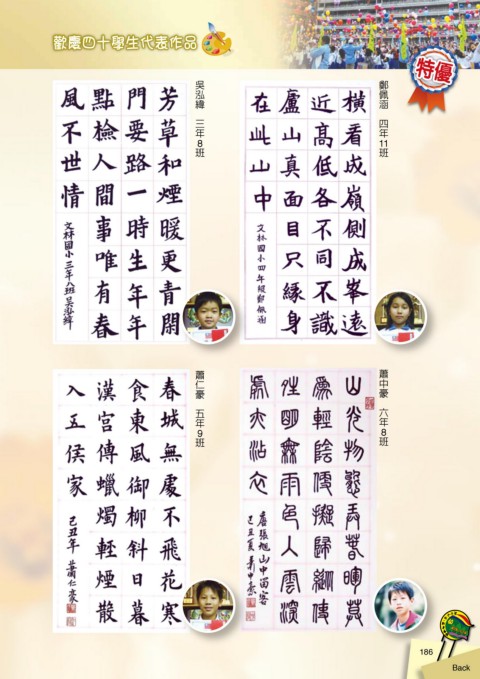 歡慶四十學生代表作品
特優
鄭佩涵 四年11班
橫看成嶺側成峯遠
近高低各不同不識
廬山真面目只緣身
在此山中
文林國小四年級鄭佩涵
吳泓緯 三年8班
芳草和煙暖更青閒
門要路一時生年年
點檢人間事唯有春
風不世情
文林國小三年八班吳泓緯
蕭中豪 六年8班
山光物態弄春暉莫
為輕陰便擬歸縱使
晴明無雨色入雲深
處亦沾衣
唐張旭山中留客
己丑夏蕭中豪
蕭仁豪 五年9班
春城無處不飛花寒
食東風御柳斜日暮
漢宮傳蠟燭輕煙散
入五侯家
己丑年 蕭仁豪
186
Back